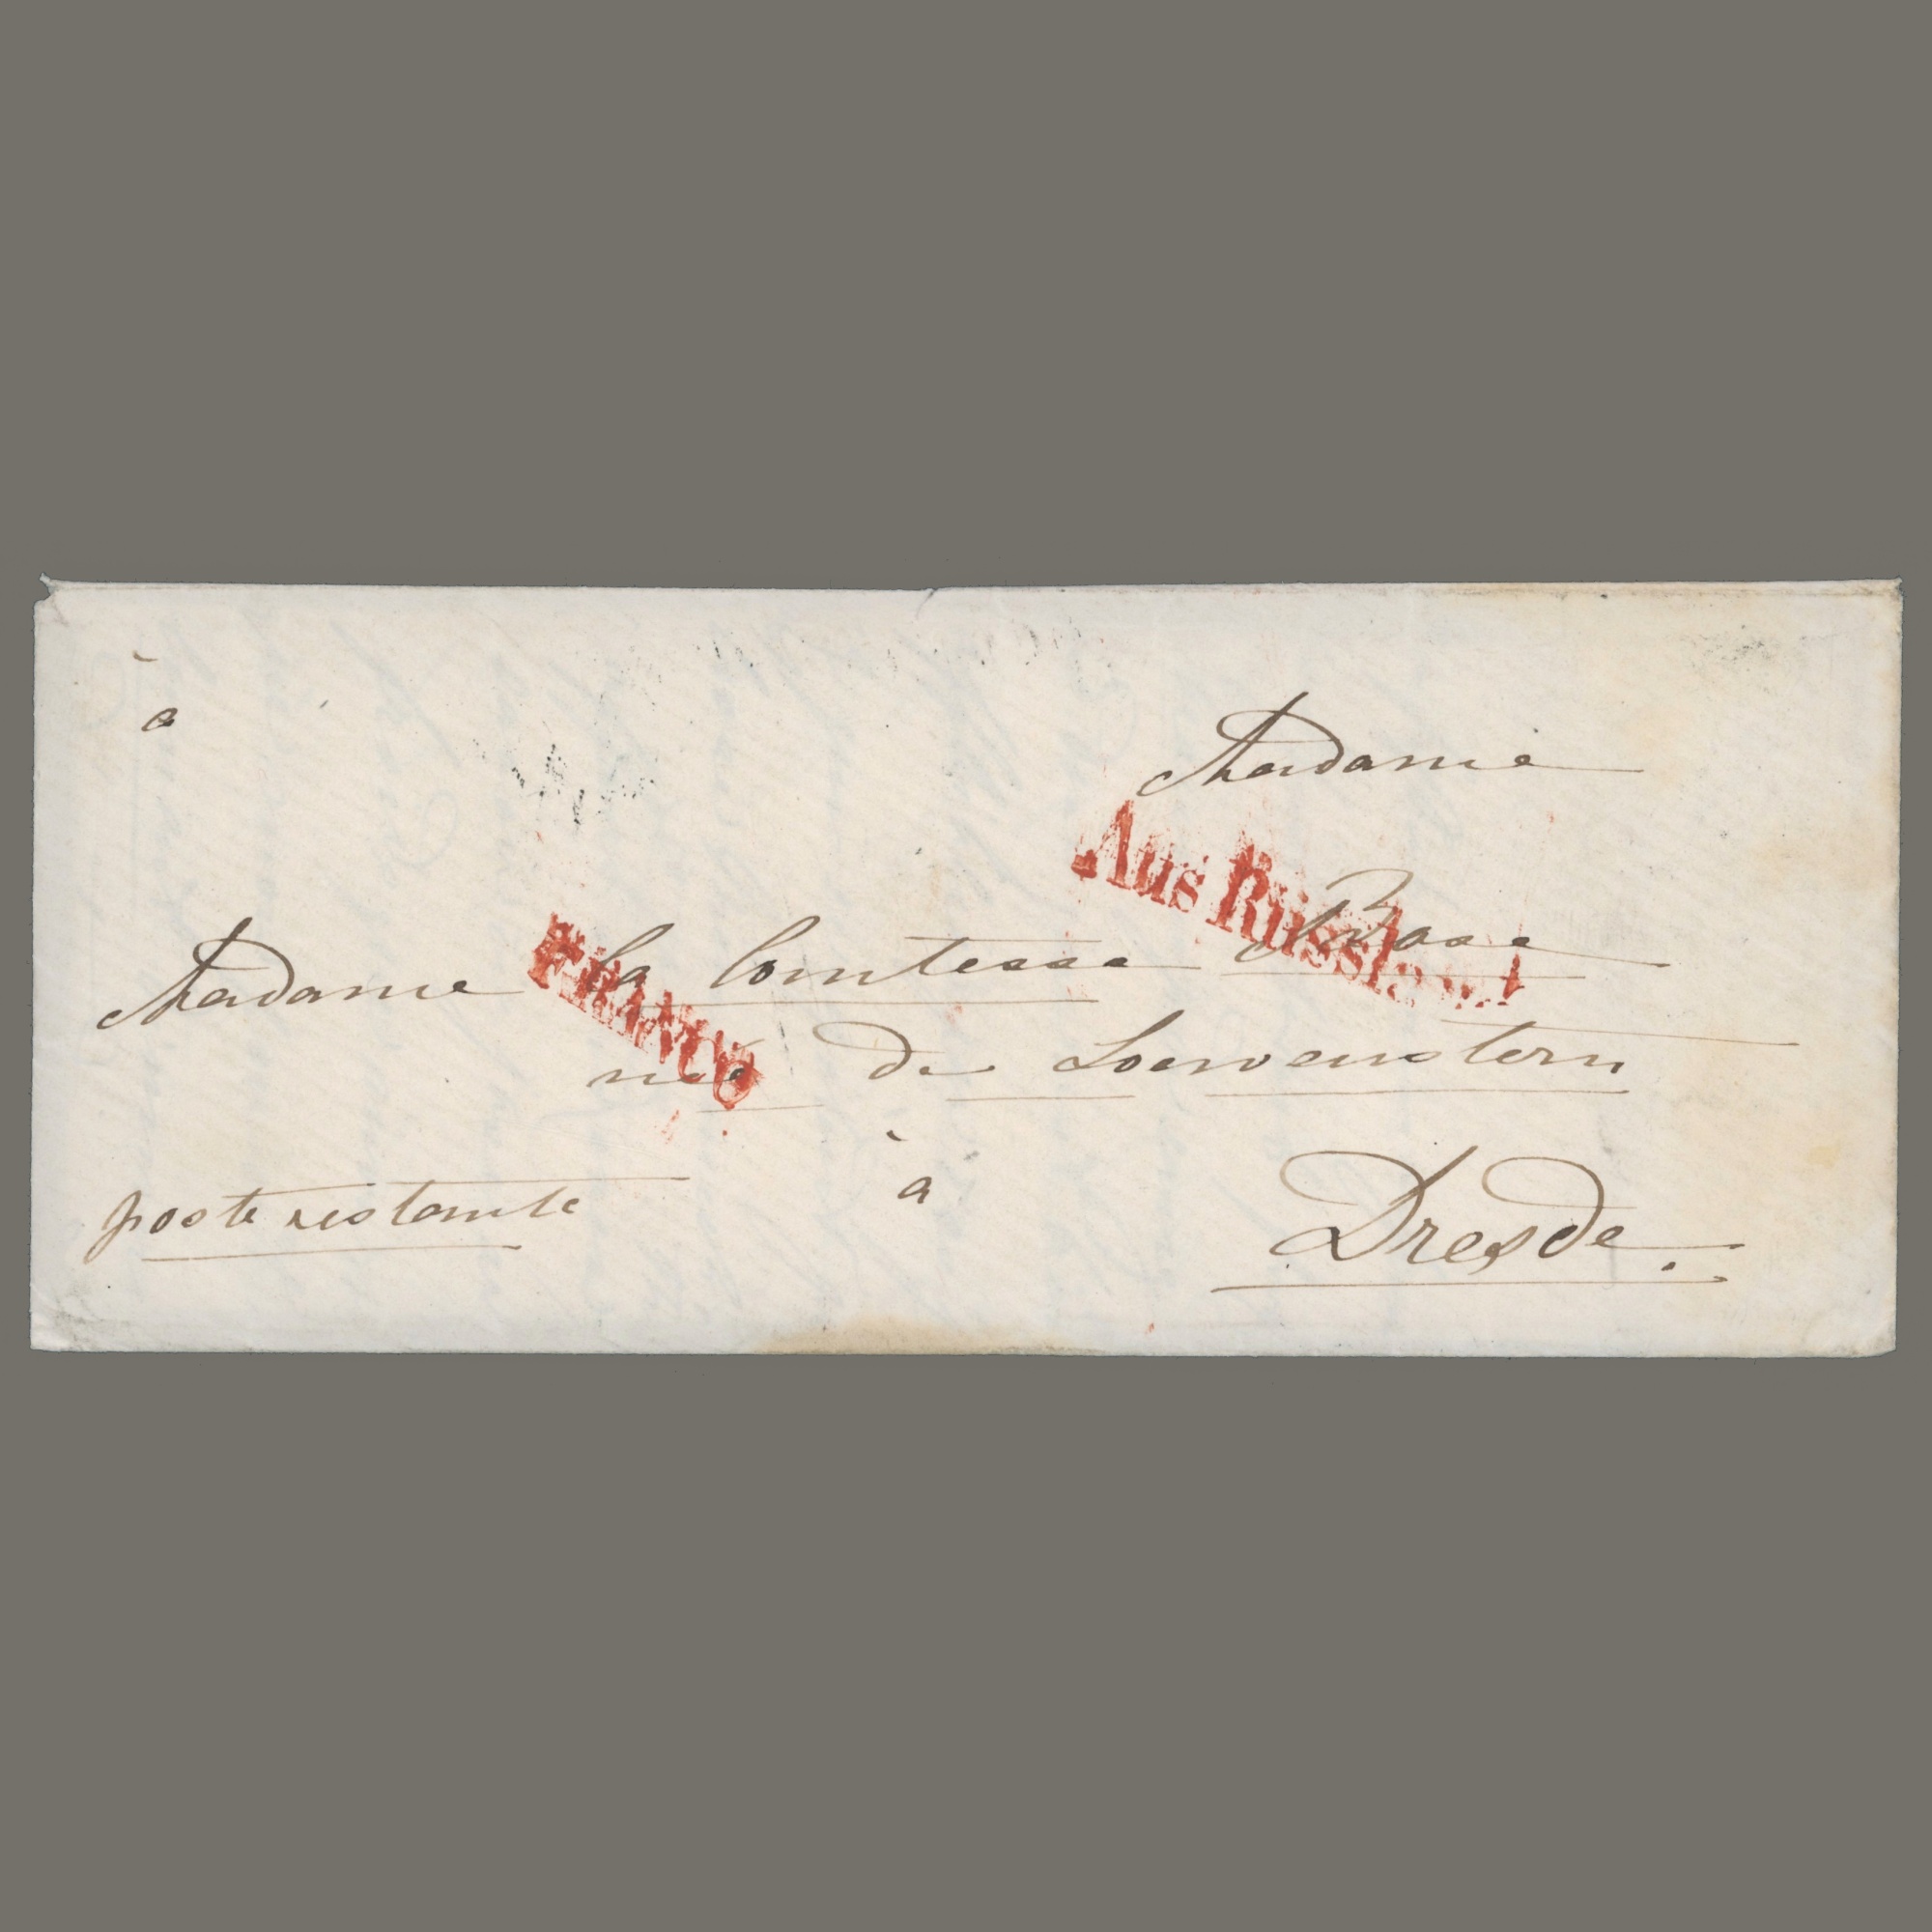 à
Madame
Aus Russland
Madame la Comtesse Bose
FRANCO
née de Loewenstern
poste restante
à
Dresde.